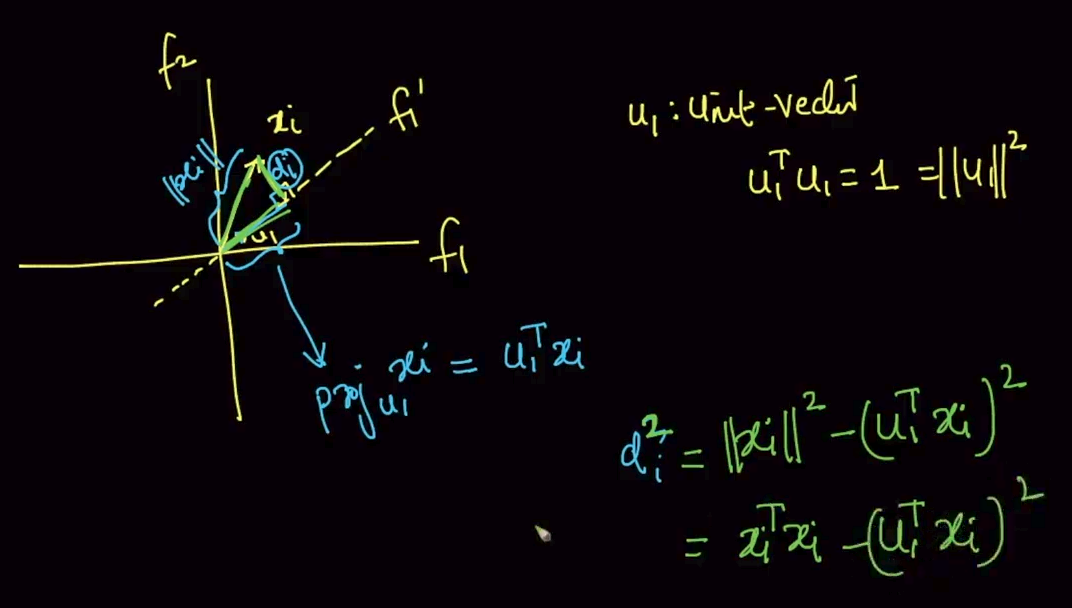 f₂
xᵢ
f₁'
‖xᵢ‖
dᵢ
u₁
f₁
proj_u₁ xᵢ = u₁ᵀxᵢ
u₁ : Unit-vector
u₁ᵀu₁ = 1 = ‖u₁‖²
dᵢ² = ‖xᵢ‖² - (u₁ᵀxᵢ)²
= xᵢᵀxᵢ - (u₁ᵀxᵢ)²